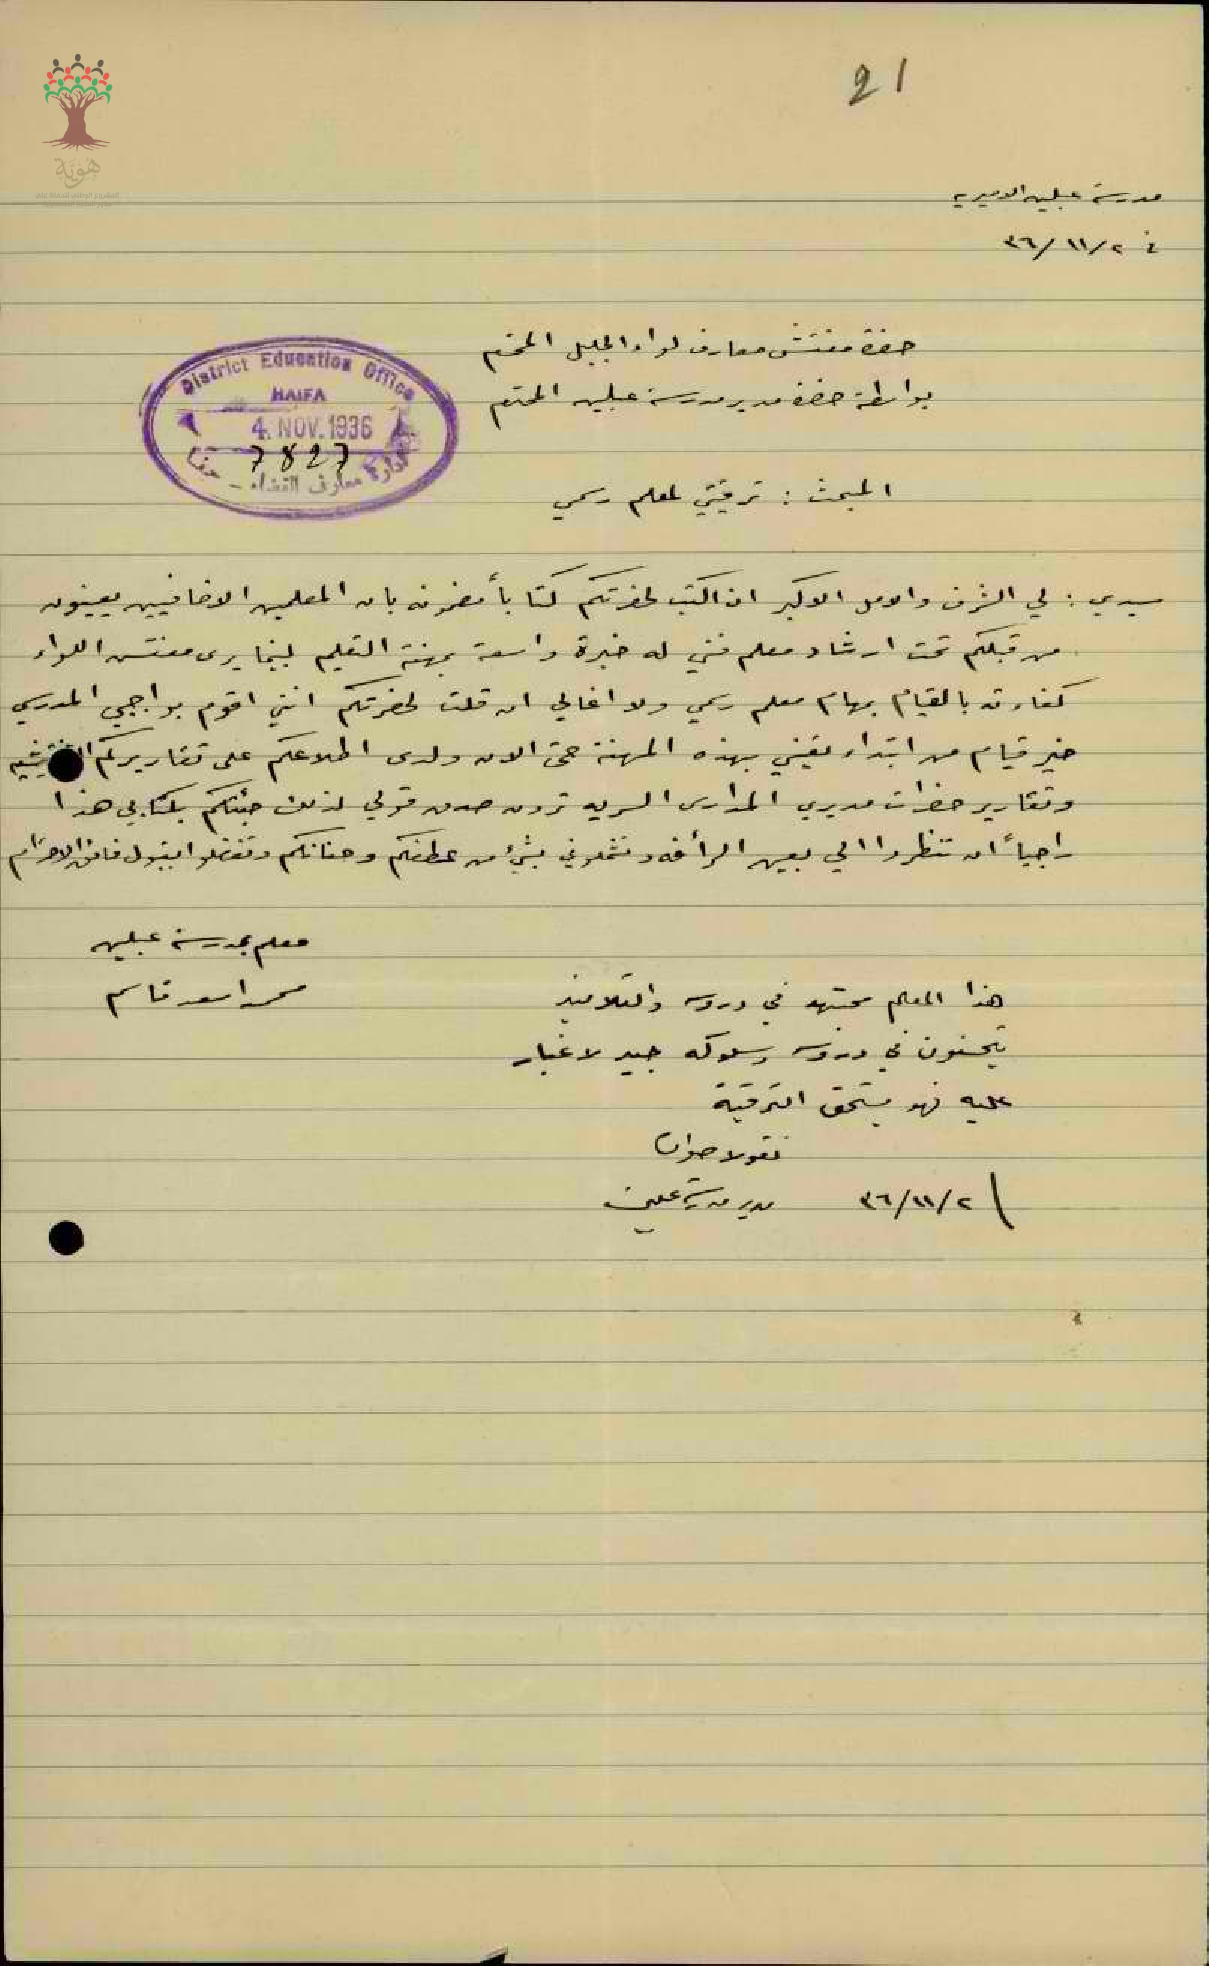 21
هوية
مدرسة عبلين الاميريه
في ٣٦/١١/٢
حضرة مفتش معارف لواء الجليل المحترم
بواسطة حضرة مدير مدرسة عبلين المحترم
District Education Office
HAIFA
4. NOV. 1936
7827
ادارة معارف القضاء - حيفا
المبحث : ترقيتي لمعلم رسمي
سيدي : لي الشرف والامل الاكبر ان اكتب لحضرتكم كتابا مضمونه بان المعلمين الاضافيين يعينون
من قبلكم تحت ارشاد معلم فني له خبرة واسعة بمهنة التعليم لبينما يرى مفتش اللواء
كفاءته بالقيام بمهام معلم رسمي ولا اغالي ان قلت لحضرتكم انني اقوم بواجبي المدرسي
خير قيام من ابتداء تعيني بهذه المهنة حتى الان ولدى اطلاعكم على تقاريركم
وتقارير حضرات مديري المدارس السريه ترون صدق قولي لذلك جئتكم بكتابي هذا
راجياً ان تنظروا الي بعين الرأفه وتشملوني بشيء من عطفكم وحنانكم وتفضلوا بقبول فائق الاحترام
معلم بمدرسة عبلين
محمد اسعد قاسم
هذا المعلم مجتهد في دروسه والتلاميذ
يتحسنون في دروسه وسلوكه جيد لا غبار
عليه فهو يستحق الترقية
نقولا
٣٦/١١/٢ مدير مدرسة عبلين